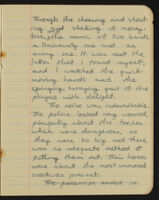 Through the cheering and shout-
ing and shaking of
University one and an
army one. It was near the
latter that I found myself,
and I watched the quick
moving hands and the
springing, swinging gait of the
players with delight.
The noise was indescribable.
The police looked very worried,
principally about the torches,
which were dangerous, as
they were so big and there
was no adequate method of
putting them out. Their horses
were about the most unmoved
creatures present.
The procession ended in